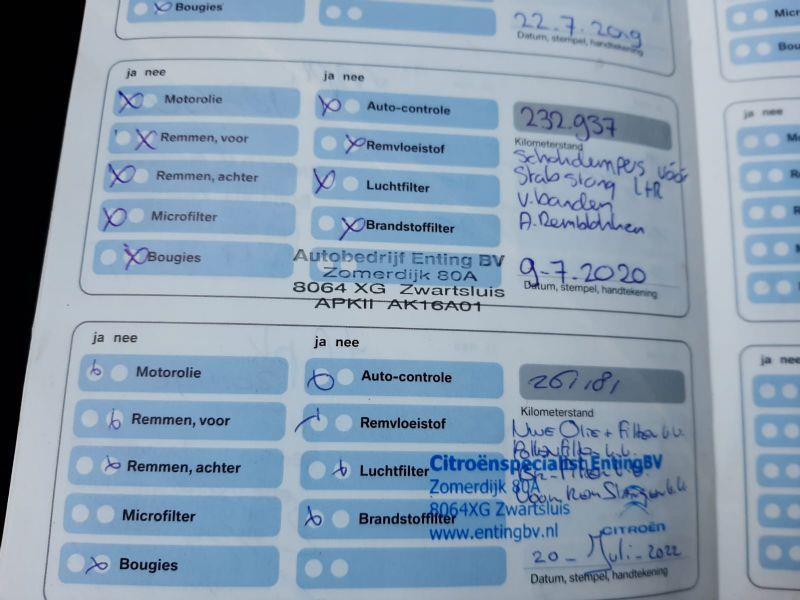 Bougies
22.7.2019
Datum, stempel, handtekening
ja nee
ja nee
Motorolie
Auto-controle
232.937
Kilometerstand
Remmen, voor
Remvloeistof
Schokdempers vóór
Stabstang L+R
V. banden
A. Remblokken
Remmen, achter
Luchtfilter
Microfilter
Brandstoffilter
Bougies
Autobedrijf Enting BV
Zomerdijk 80A
8064 XG Zwartsluis
APKII AK16A01
9-7.2020
Datum, stempel, handtekening
ja nee
ja nee
Motorolie
Auto-controle
261181
Kilometerstand
Remmen, voor
Remvloeistof
Nwe Olie + Filter
Remmen, achter
Luchtfilter
Citroënspecialist EntingBV
Zomerdijk 80A
8064XG Zwartsluis
www.entingbv.nl
CITROËN
Microfilter
Brandstoffilter
Bougies
20-Juli-2022
Datum, stempel, handtekening
ja nee
ja nee